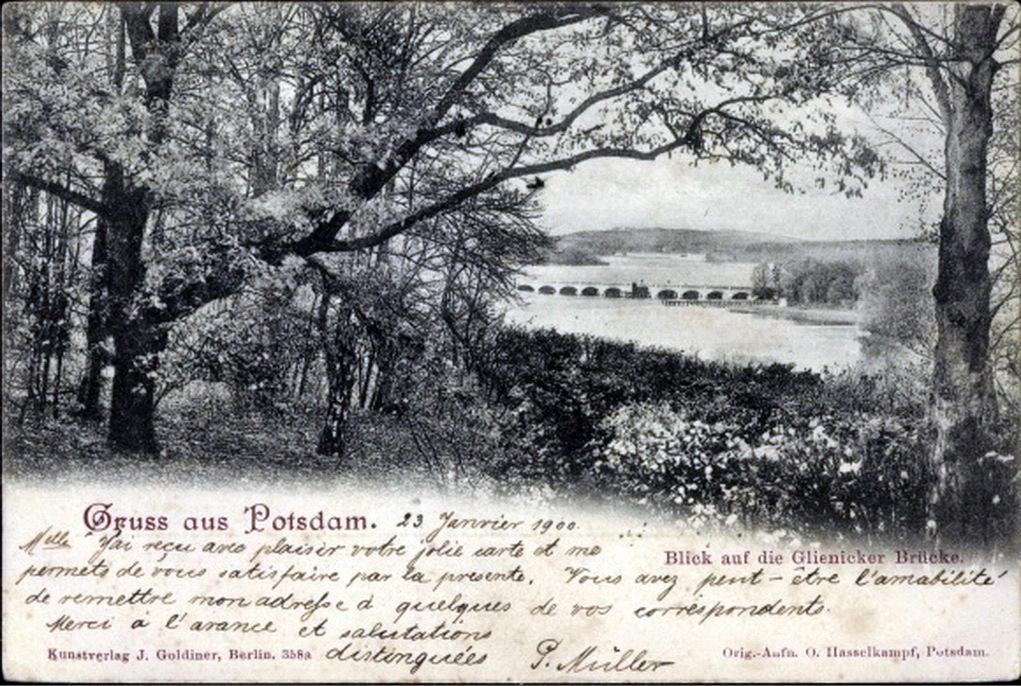 Gruss aus Potsdam. 23 Janvier 1900.
Blick auf die Glienicker Brücke.
Melle J'ai reçu avec plaisir votre jolie carte et me
permets de vous satisfaire par la présente. Vous avez peut-être l'amabilité
de remettre mon adresse à quelques de vos correspondents.
Merci à l'avance et salutations
distinguées P. Müller
Kunstverlag J. Goldiner, Berlin. 358a
Orig.-Aufn. O. Hasselkampf, Potsdam.